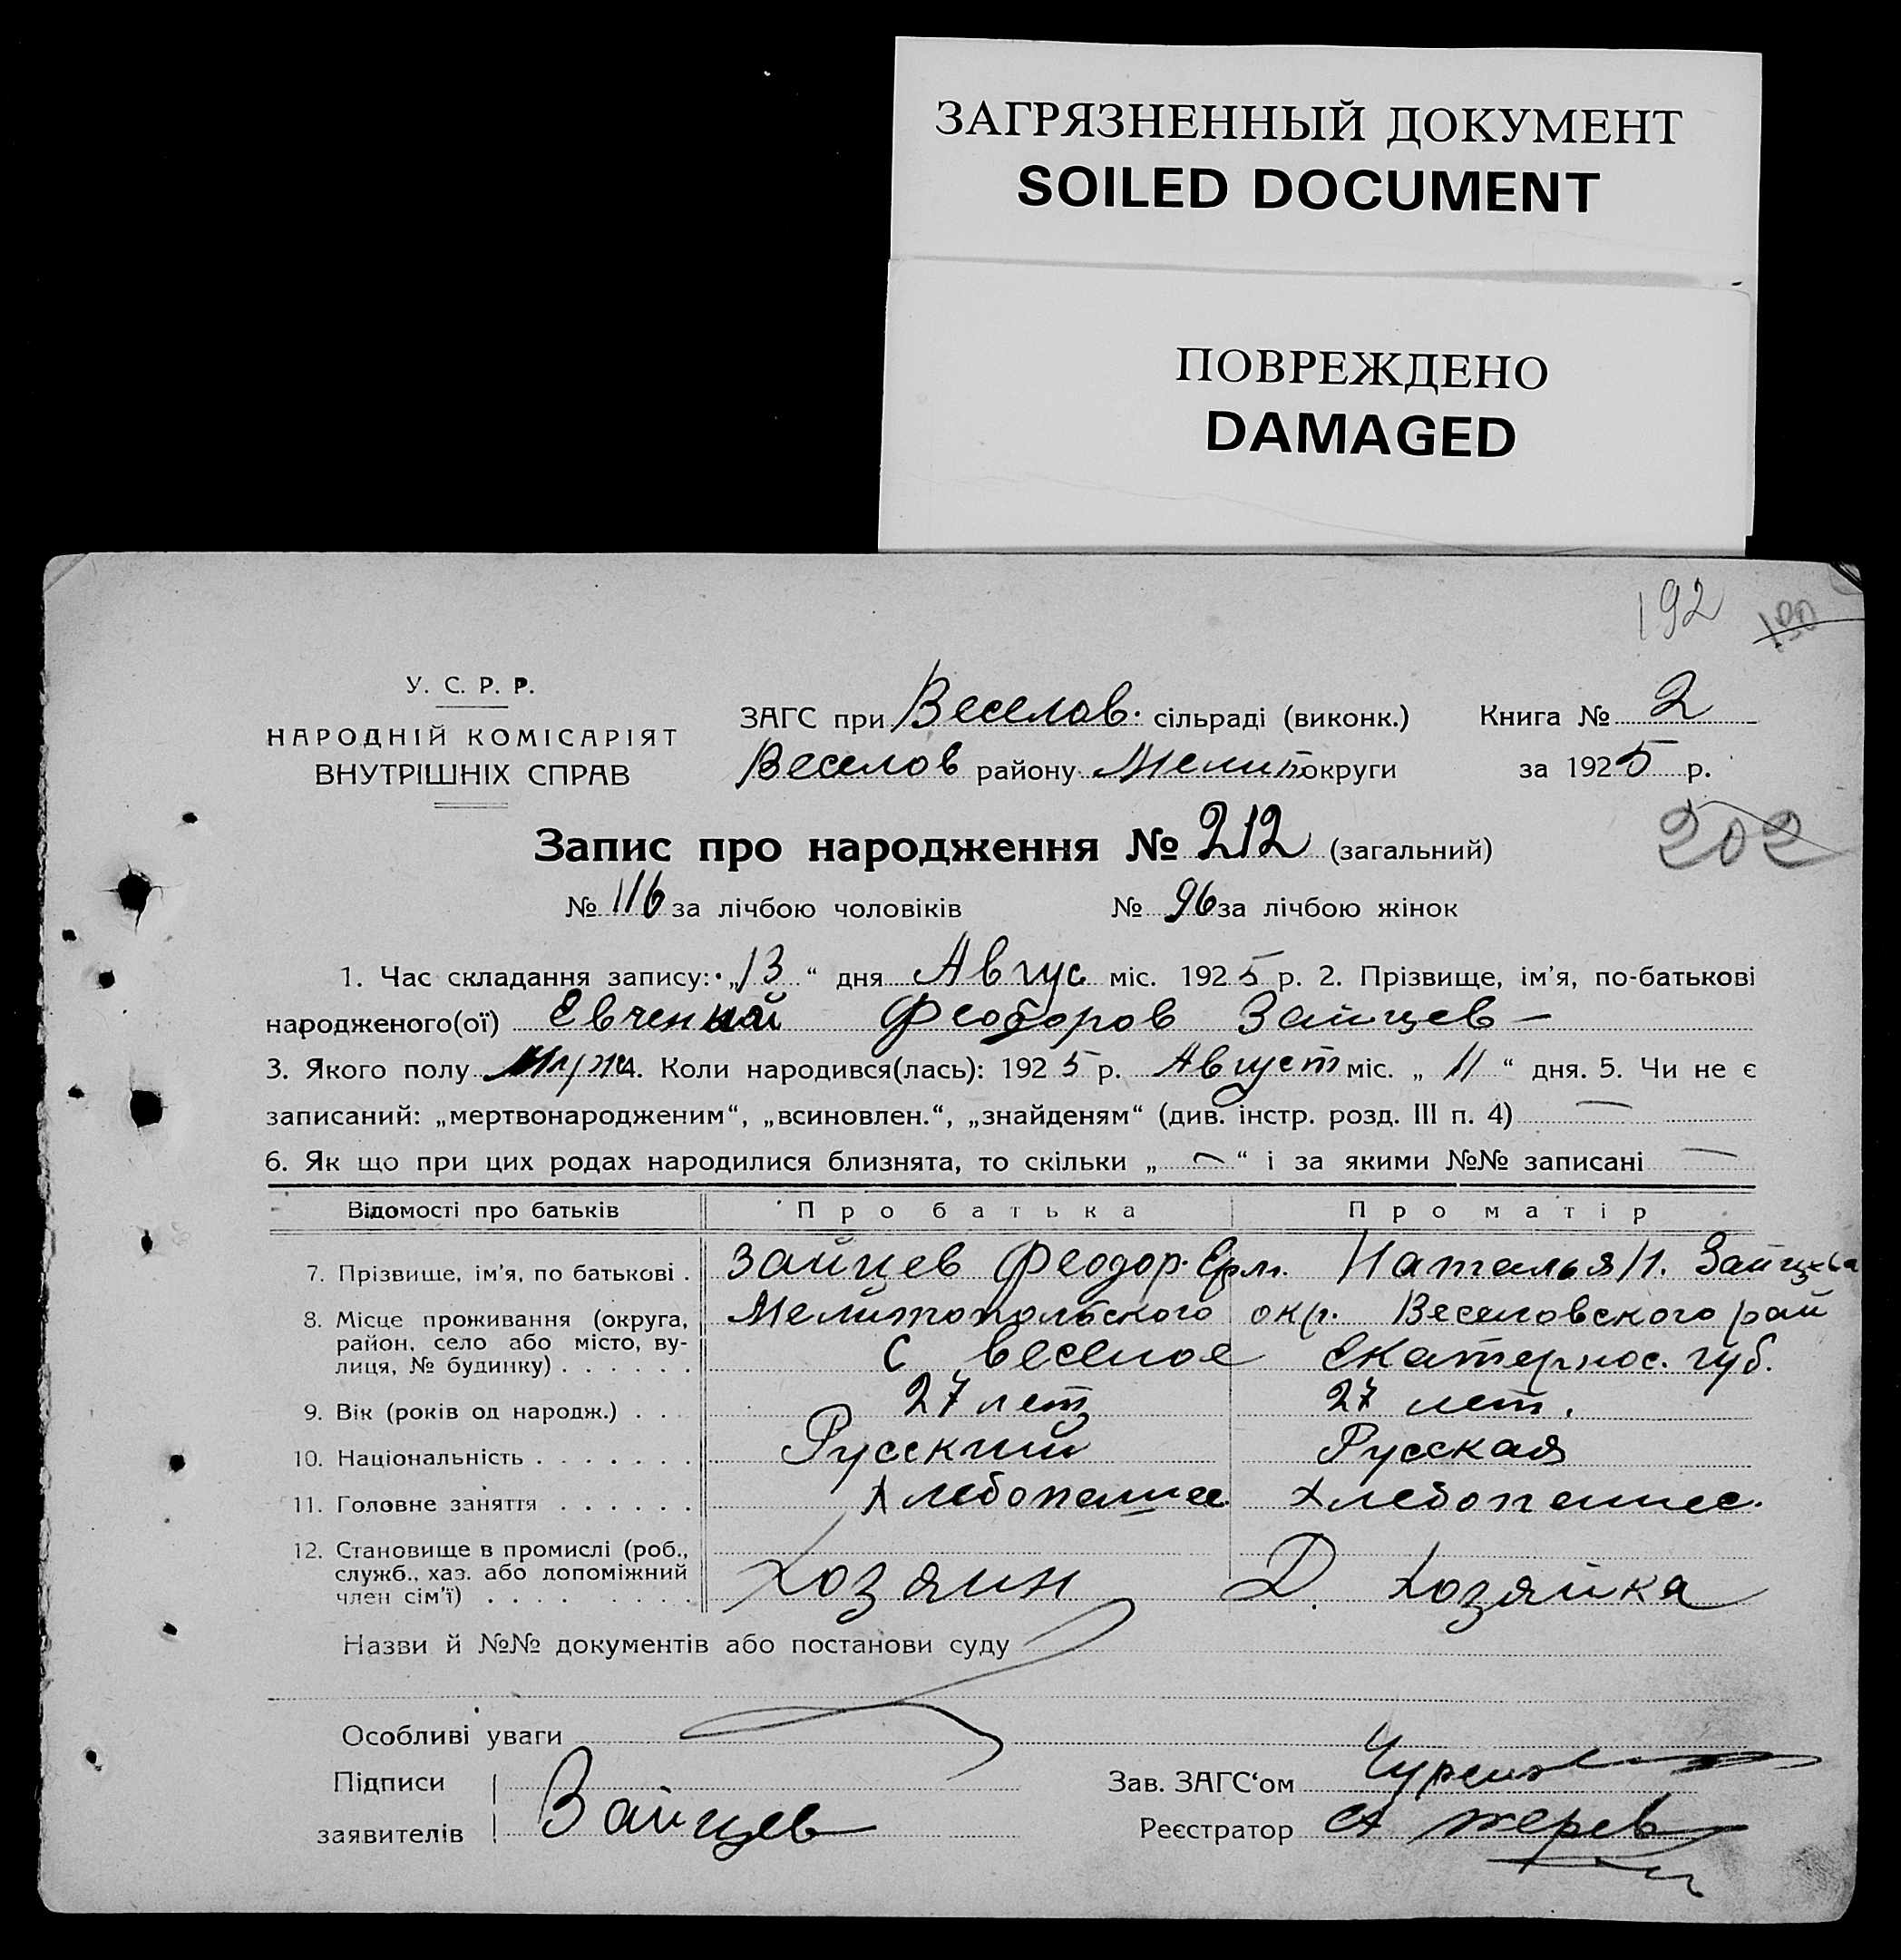 ЗАГРЯЗНЕННЫЙ ДОКУМЕНТ
SOILED DOCUMENT
ПОВРЕЖДЕНО
DAMAGED
192 130
У. С. Р. Р.
НАРОДНІЙ КОМІСАРІЯТ
ВНУТРІШНІХ СПРАВ
ЗАГС при Веселов. сільраді (виконк.) Книга № 2
Веселов району Мелит округи за 1925 р.
202
Запис про народження № 212 (загальний)
№ 116 за лічбою чоловіків № 96 за лічбою жінок
1. Час складання запису: „13“ дня Авгус міс. 1925 р. 2. Прізвище, ім'я, по-батькові
народженого(ої) Евгений Феодоров Зайцев —
3. Якого полу Муж 4. Коли народився(лась): 1925 р. Август міс. „11“ дня. 5. Чи не є
записаний: „мертвонародженим“, „всиновлен.“, „знайденям“ (див. інстр. розд. III п. 4) —
6. Як що при цих родах народилися близнята, то скільки „—“ і за якими №№ записані —
Відомості про батьків Про батька Про матір
7. Прізвище, ім'я, по батькові . Зайцев Феодор. Наталья Н. Зайцева
8. Місце проживання (округа, Мелитопольского окр. Веселовского рай
район, село або місто, ву-
лиця, № будинку) . . . . . . С Веселое Екатеринос. губ.
9. Вік (років од народж.) . . . 27 лет 27 лет.
10. Національність . . . . . . . Русский Русская
11. Головне заняття . . . . . . Хлебопашес Хлебопашес.
12. Становище в промислі (роб.,
служб., хаз. або допоміжний
член сім'ї) . . . . . . . . Хозяин Д. Хозяйка
Назви й №№ документів або постанови суду
Особливі уваги
Підписи
заявителів Зайцев
Зав. ЗАГС‘ом
Реєстратор